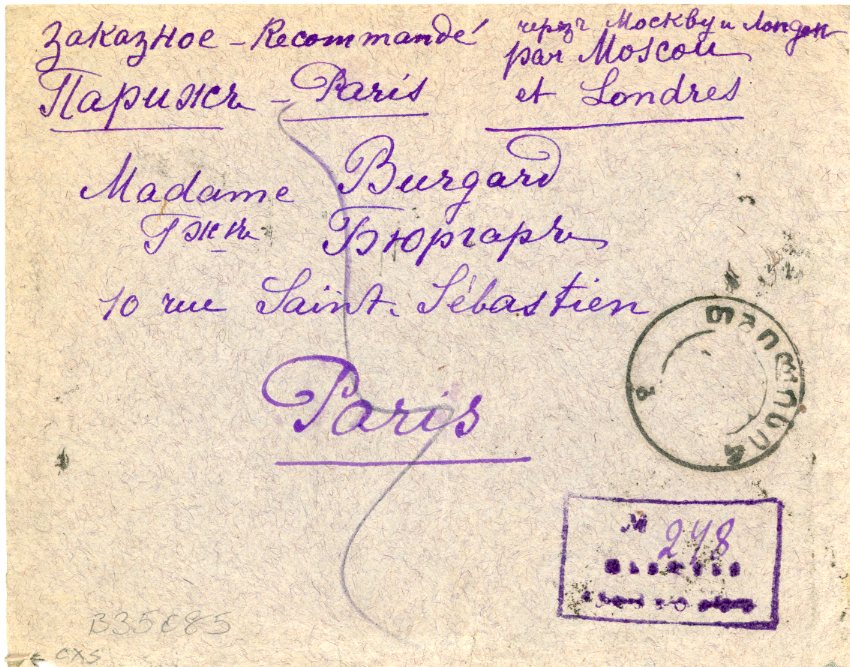 Заказное - Recommandé
через Москву и Лондон
par Moscou
et Londres
Парижъ - Paris
Madame Burgard
Гжѣ Бюргаръ
10 rue Saint-Sébastien
Paris
№ 248
B35C85
CXS